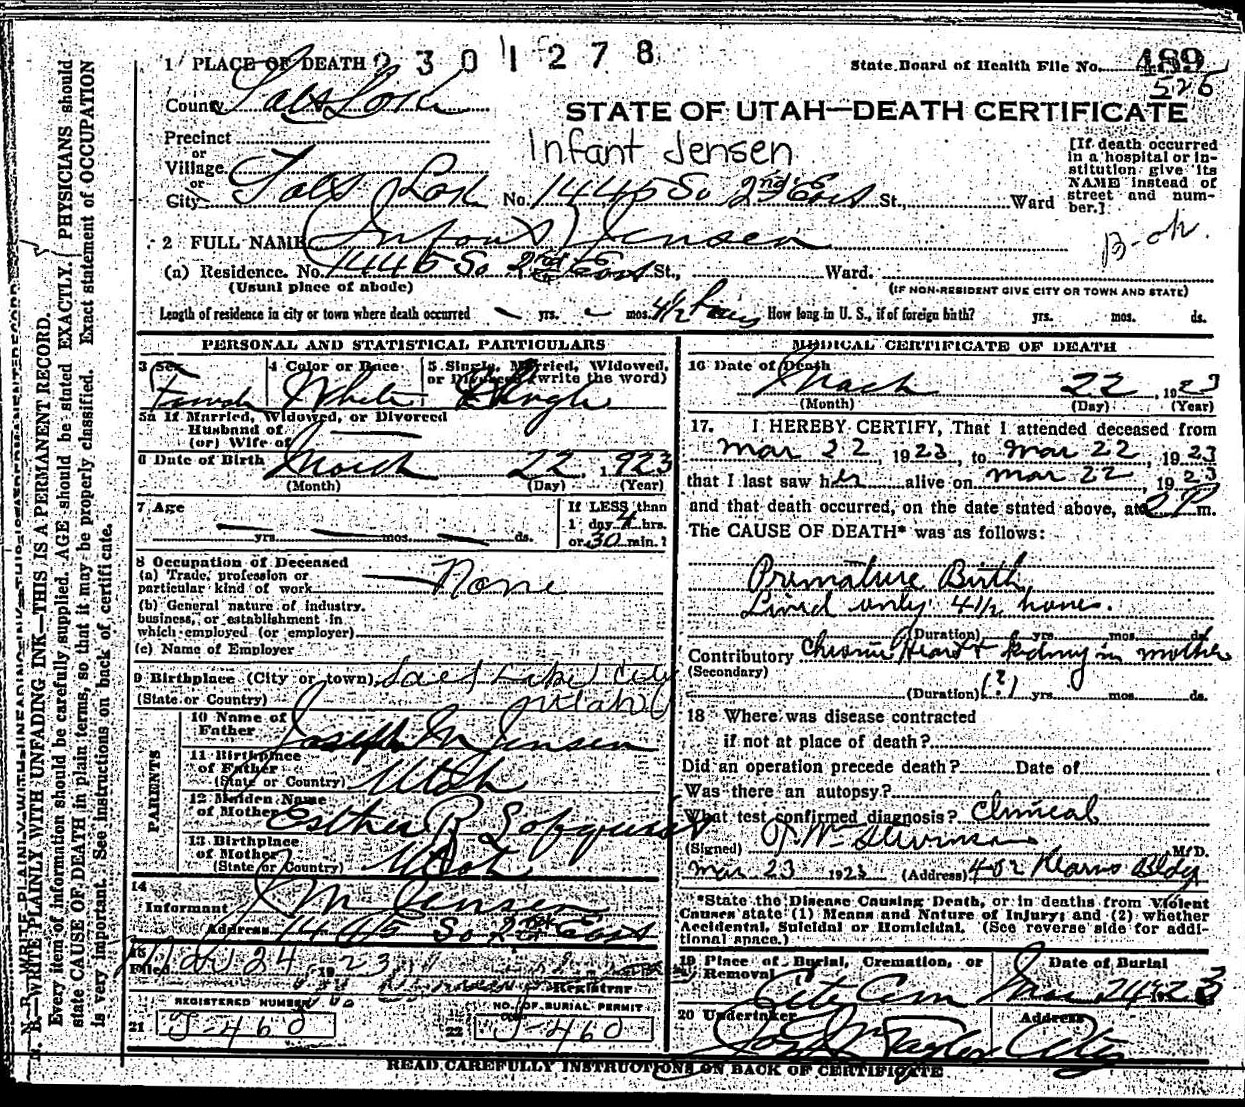 2301278
1 PLACE OF DEATH
State Board of Health File No. 489
525
County Salt Lake
STATE OF UTAH—DEATH CERTIFICATE
Precinct
or
Village
or
City Salt Lake No. 1445 So 2nd East St., Ward
Infant Jensen
[If death occurred in a hospital or institution give its NAME instead of street and number.]
2 FULL NAME (Infant) Jensen
(a) Residence. No. 1445 So 2nd East St., Ward.
(Usual place of abode) (IF NON-RESIDENT GIVE CITY OR TOWN AND STATE)
Length of residence in city or town where death occurred yrs. mos. 4½ hours How long in U. S., if of foreign birth? yrs. mos. ds.
PERSONAL AND STATISTICAL PARTICULARS
3 Sex 4 Color or Race White 5 Single, Married, Widowed, or Divorced (write the word) Single
5a If Married, Widowed, or Divorced
Husband of
(or) Wife of
6 Date of Birth March 22 1923
(Month) (Day) (Year)
7 Age If LESS than
1 day 4 hrs.
yrs. mos. ds. or 30 min.?
8 Occupation of Deceased
(a) Trade, profession or particular kind of work None
(b) General nature of industry, business, or establishment in which employed (or employer)
(c) Name of Employer
9 Birthplace (City or town) Salt Lake City
(State or Country) Utah
PARENTS
10 Name of Father Joseph M Jensen
11 Birthplace of Father (State or Country) Utah
12 Maiden Name of Mother Esther R
13 Birthplace of Mother (State or Country) Utah
14
Informant J M Jensen
Address 1445 So 2nd East
15
Filed Mar 24 1923
Registrar
REGISTERED NUMBER
21 J-460
NO. OF BURIAL PERMIT
22 J-460
MEDICAL CERTIFICATE OF DEATH
16 Date of Death March 22, 1923
(Month) (Day) (Year)
17. I HEREBY CERTIFY, That I attended deceased from
Mar 22, 1923, to Mar 22, 1923
that I last saw her alive on Mar 22, 1923
and that death occurred, on the date stated above, at 2 P m.
The CAUSE OF DEATH* was as follows:
Premature Birth
Lived only 4½ hours.
(Duration) yrs. mos. ds.
Contributory Chronic Heart & Kidney in mother
(Secondary)
(Duration) (?) yrs. mos. ds.
18 Where was disease contracted
if not at place of death?
Did an operation precede death? Date of
Was there an autopsy?
What test confirmed diagnosis? Clinical
(Signed) M.D.
Mar 23 1923 (Address) 402 Kearns Bldg
*State the Disease Causing Death, or in deaths from Violent
Causes state (1) Means and Nature of Injury; and (2) whether
Accidental, Suicidal or Homicidal. (See reverse side for additional space.)
19 Place of Burial, Cremation, or Removal Date of Burial
City Cem Mar 24 1923
20 Undertaker Address
Taylor City
READ CAREFULLY INSTRUCTIONS ON BACK OF CERTIFICATE
N. B.—WRITE PLAINLY WITH UNFADING INK—THIS IS A PERMANENT RECORD.
Every item of information should be carefully supplied. AGE should be stated EXACTLY. PHYSICIANS should
state CAUSE OF DEATH in plain terms, so that it may be properly classified. Exact statement of OCCUPATION
is very important. See instructions on back of certificate.